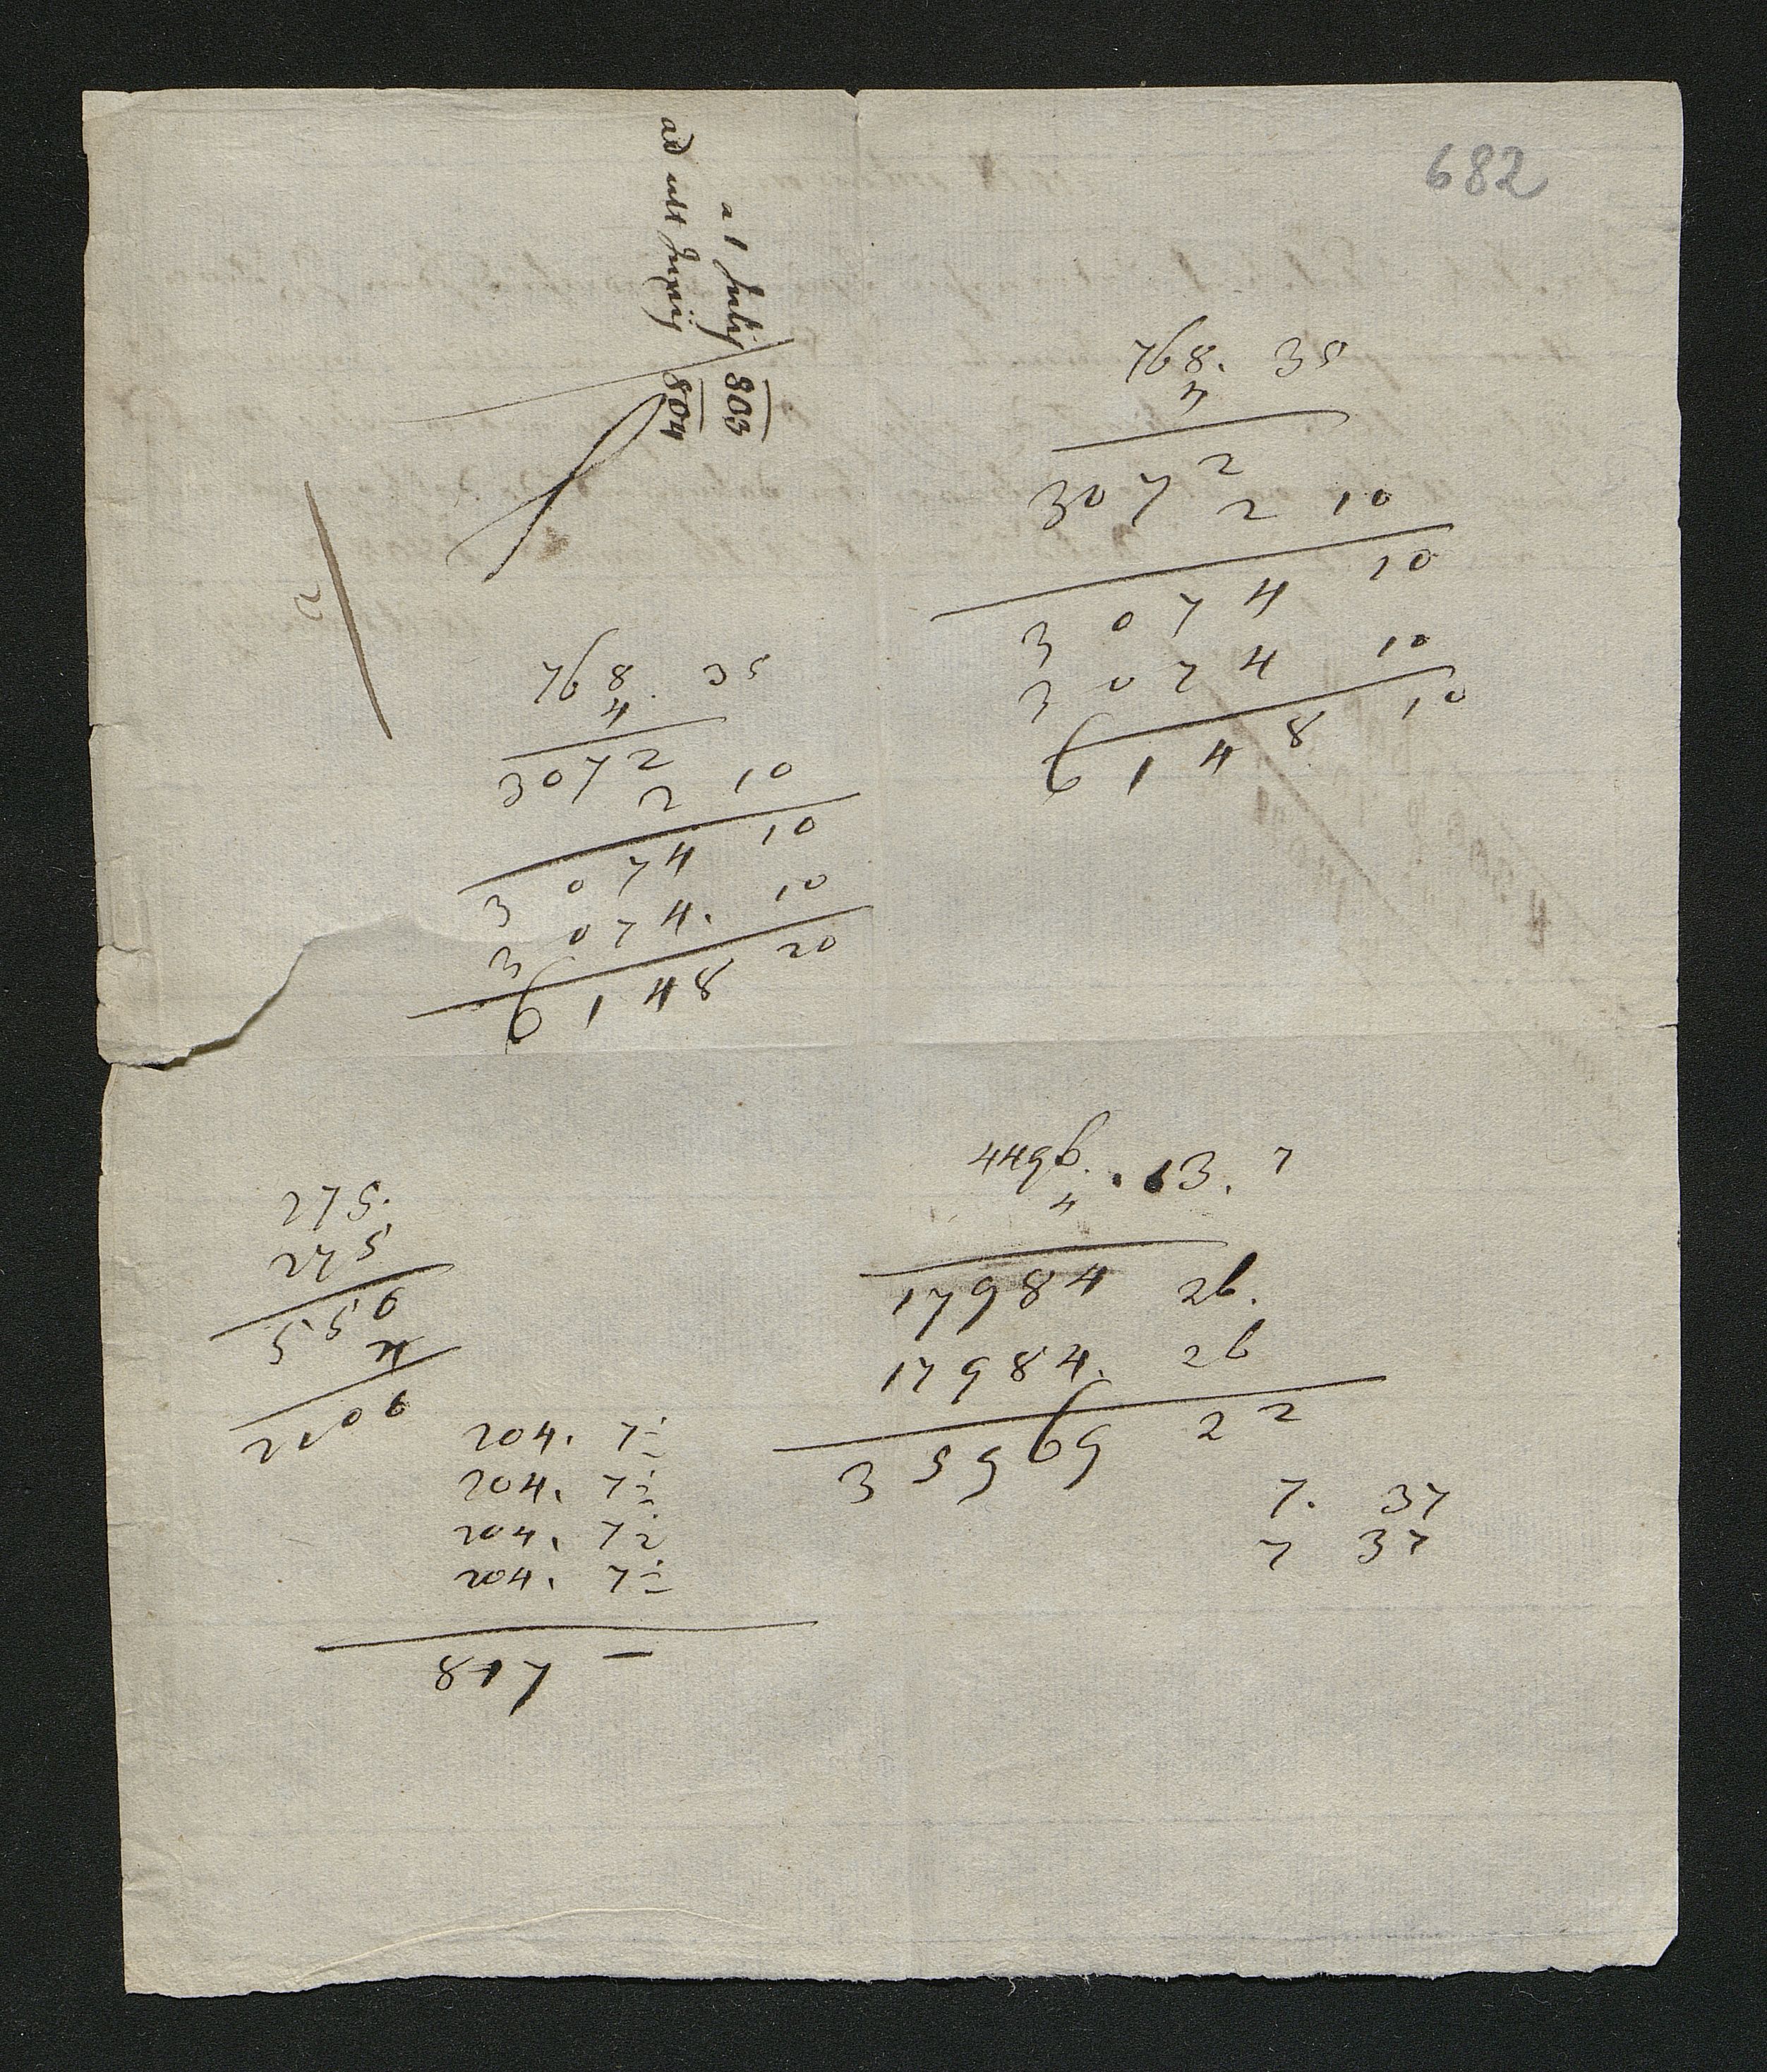 682
a 1 Julij 803
ad ult Junij 804
768. 35
4
3072
2 10
3074 10
3074 10
6148 10
768. 35
4
3072
2 10
3074 10
3074. 10
6148 20
4496. . 13. 7
4
17984 26.
17984. 26
35969 22
7. 37
7 37
275.
275
550
4
2200
204. 7½
204. 7½
204. 7½
204. 7½
817 —